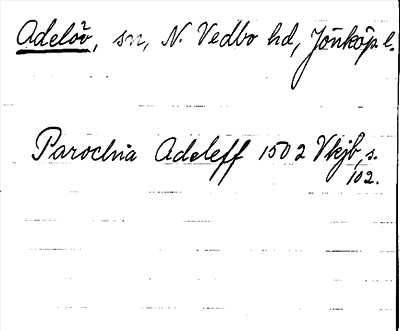 Adelöv, sn, N. Vedbo hd, Jönköp l.
Parochia Adeleff 1502 Vkjb, s.
102.